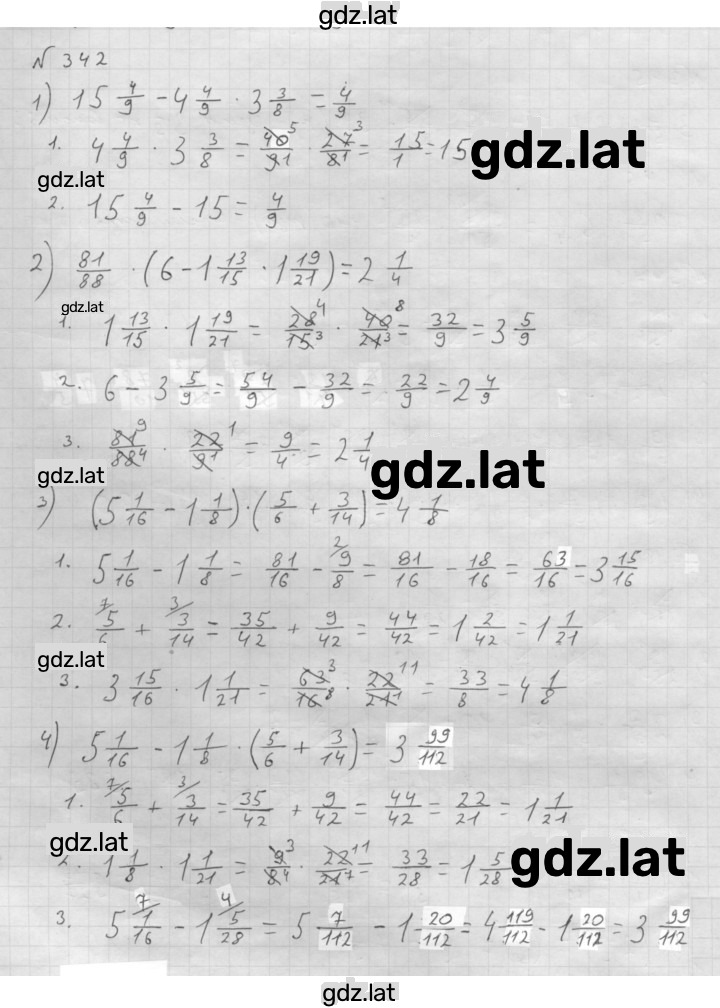 gdz.lat
№ 342
1) 15 4/9 - 4 4/9 · 3 3/8 = 4/9
1. 4 4/9 · 3 3/8 = 40 5/9 1 · 27 3/8 1 = 15/1 = 15
gdz.lat
gdz.lat
2. 15 4/9 - 15 = 4/9
2) 81/88 · (6 - 1 13/15 · 1 19/21) = 2 1/4
gdz.lat
1. 1 13/15 · 1 19/21 = 28 4/15 3 · 40 8/21 3 = 32/9 = 3 5/9
2. 6 - 3 5/9 = 54/9 - 32/9 = 22/9 = 2 4/9
3. 81 9/88 4 · 22 1/9 1 = 9/4 = 2 1/4
gdz.lat
gdz.lat
3) (5 1/16 - 1 1/8) · (5/6 + 3/14) = 4 1/8
1. 5 1/16 - 1 1/8 = 81/16 - 2/ 9/8 = 81/16 - 18/16 = 63/16 = 3 15/16
2. 7/ 5/6 + 3/ 3/14 = 35/42 + 9/42 = 44/42 = 1 2/42 = 1 1/21
gdz.lat
3. 3 15/16 · 1 1/21 = 63 3/16 8 · 22 11/21 1 = 33/8 = 4 1/8
4) 5 1/16 - 1 1/8 · (5/6 + 3/14) = 3 99/112
1. 7/ 5/6 + 3/ 3/14 = 35/42 + 9/42 = 44/42 = 22/21 = 1 1/21
gdz.lat
gdz.lat
2. 1 1/8 · 1 1/21 = 9 3/8 4 · 22 11/21 7 = 33/28 = 1 5/28
3. 5 7/ 1/16 - 1 4/ 5/28 = 5 7/112 - 1 20/112 = 4 119/112 - 1 20/112 = 3 99/112
gdz.lat